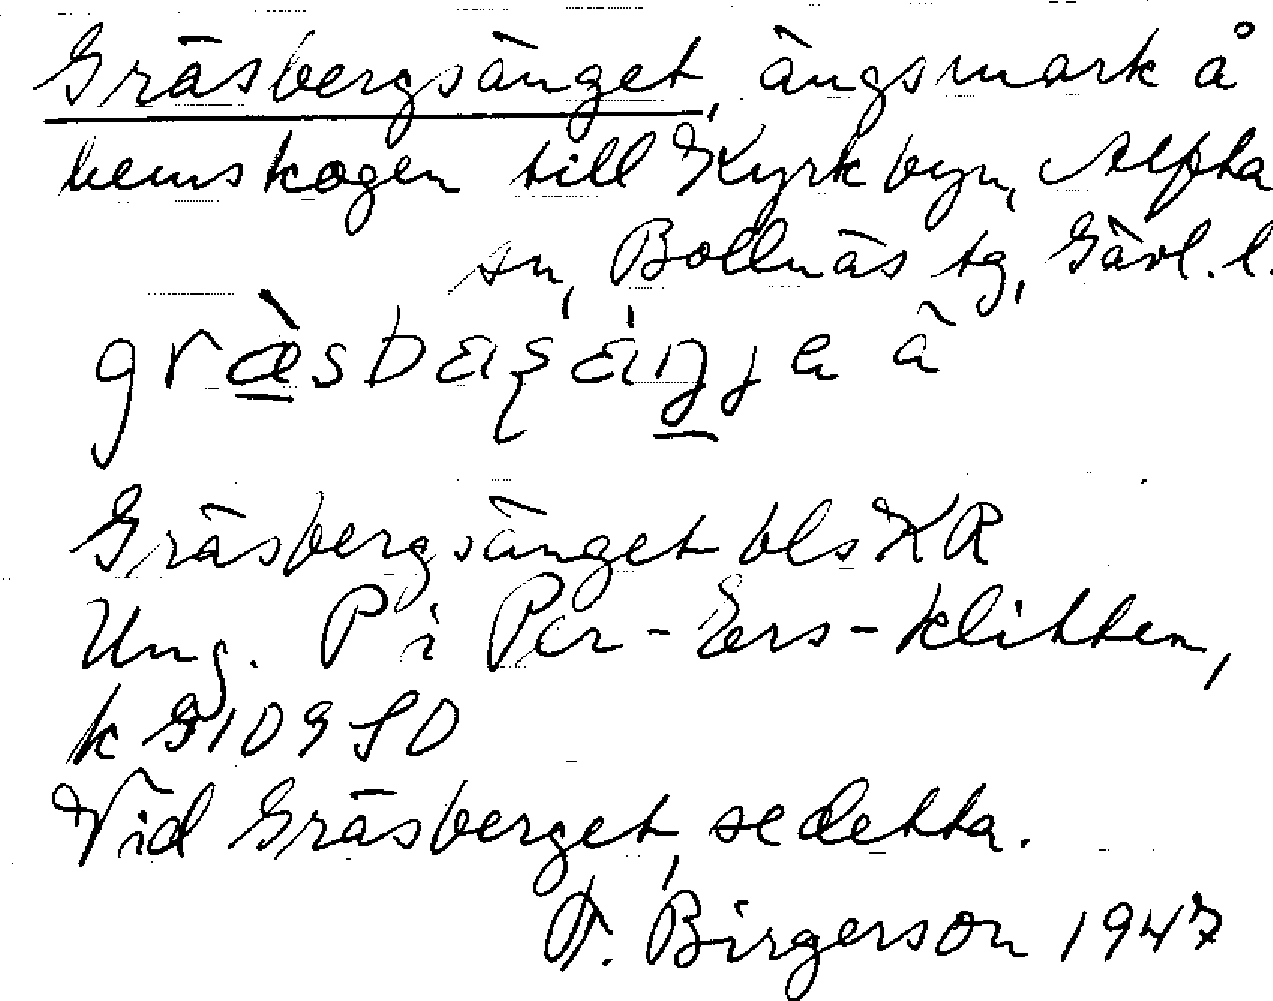 Gräsbergsänget, ängsmark å
hemskogen till Kyrkbyn, Alfta
sn, Bollnäs tg, Gävl. l.
Gräsbergsänget bls KR
Ung. P i Per-Ers-klitten,
k 9109 SO
Vid Gräsberget, se detta.
F. Birgerson 1947